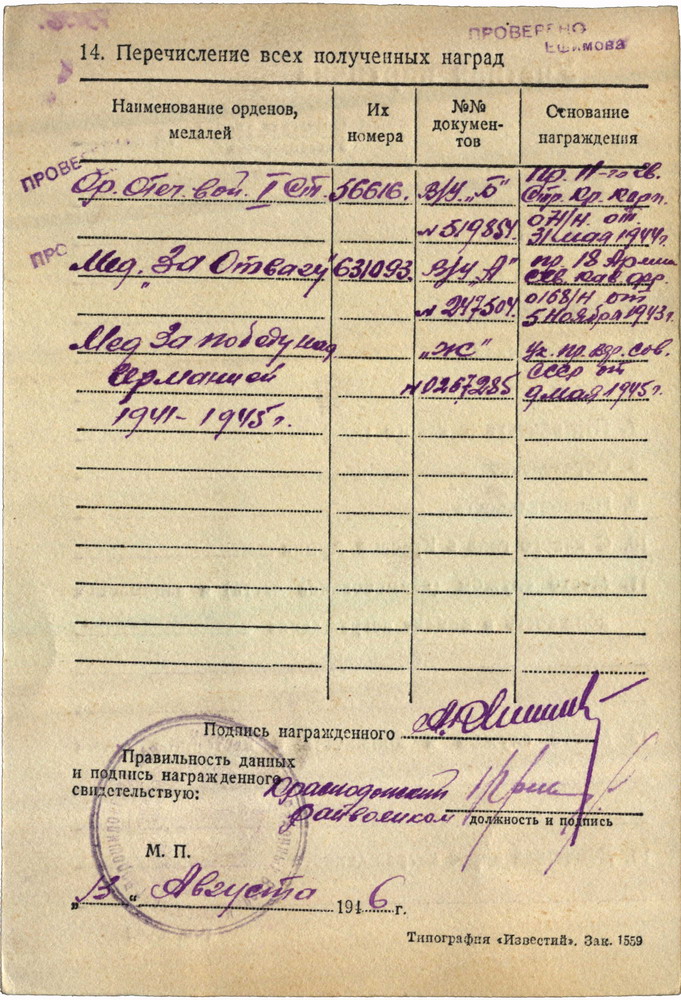 ПРОВЕРЕНО
Ефимова
14. Перечисление всех полученных наград
Наименование орденов, медалей
Их номера
№№ документов
Основание награждения
ПРОВЕ
Ор. Отеч. вой. II Ст. 56616. В/У „Б" пр. 11-го Гв.
Стр. Кр. Карп.
№ 519854. 07/н. от
31 мая 1944 г.
ПРО
Мед. „За Отвагу" 631093. В/У „А" пр. 18 Армии
Сев Кав фр.
№ 247504. 0168/н от
5 Ноября 1943 г.
Мед За победу над „Ж" Ук. пр. вер. сов.
Германией СССР от
№ 0267285 9 мая 1945 г.
1941-1945 г.
Подпись награжденного
Правильность данных
и подпись награжденного
свидетельствую:
Краснодонский
райвоенком
должность и подпись
М. П.
„13" Августа 1946 г.
Типография «Известий». Зак. 1559